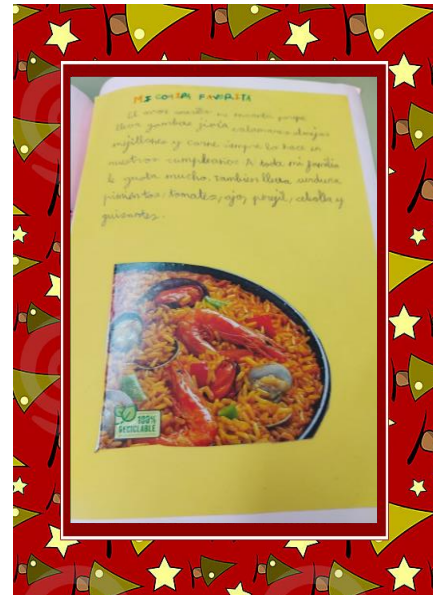 MI COMIDA FAVORITA
El arroz me encanta porque
lleva gambas, jibia, calamares,
mejillones y carne siempre lo hace en
nuestros cumpleaños A toda mi familia
le gusta mucho. tambien lleva verdura
pimientos, tomates, ajo, perejil, cebolla y
guisantes.
100%
RECICLABLE